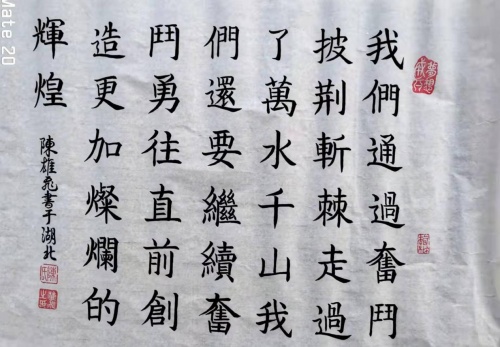 我們通過奮鬥
披荆斬棘走過
了萬水千山我
們還要繼續奮
鬥勇往直前創
造更加燦爛的
輝煌
陳雄飛書于湖北
Mate 20